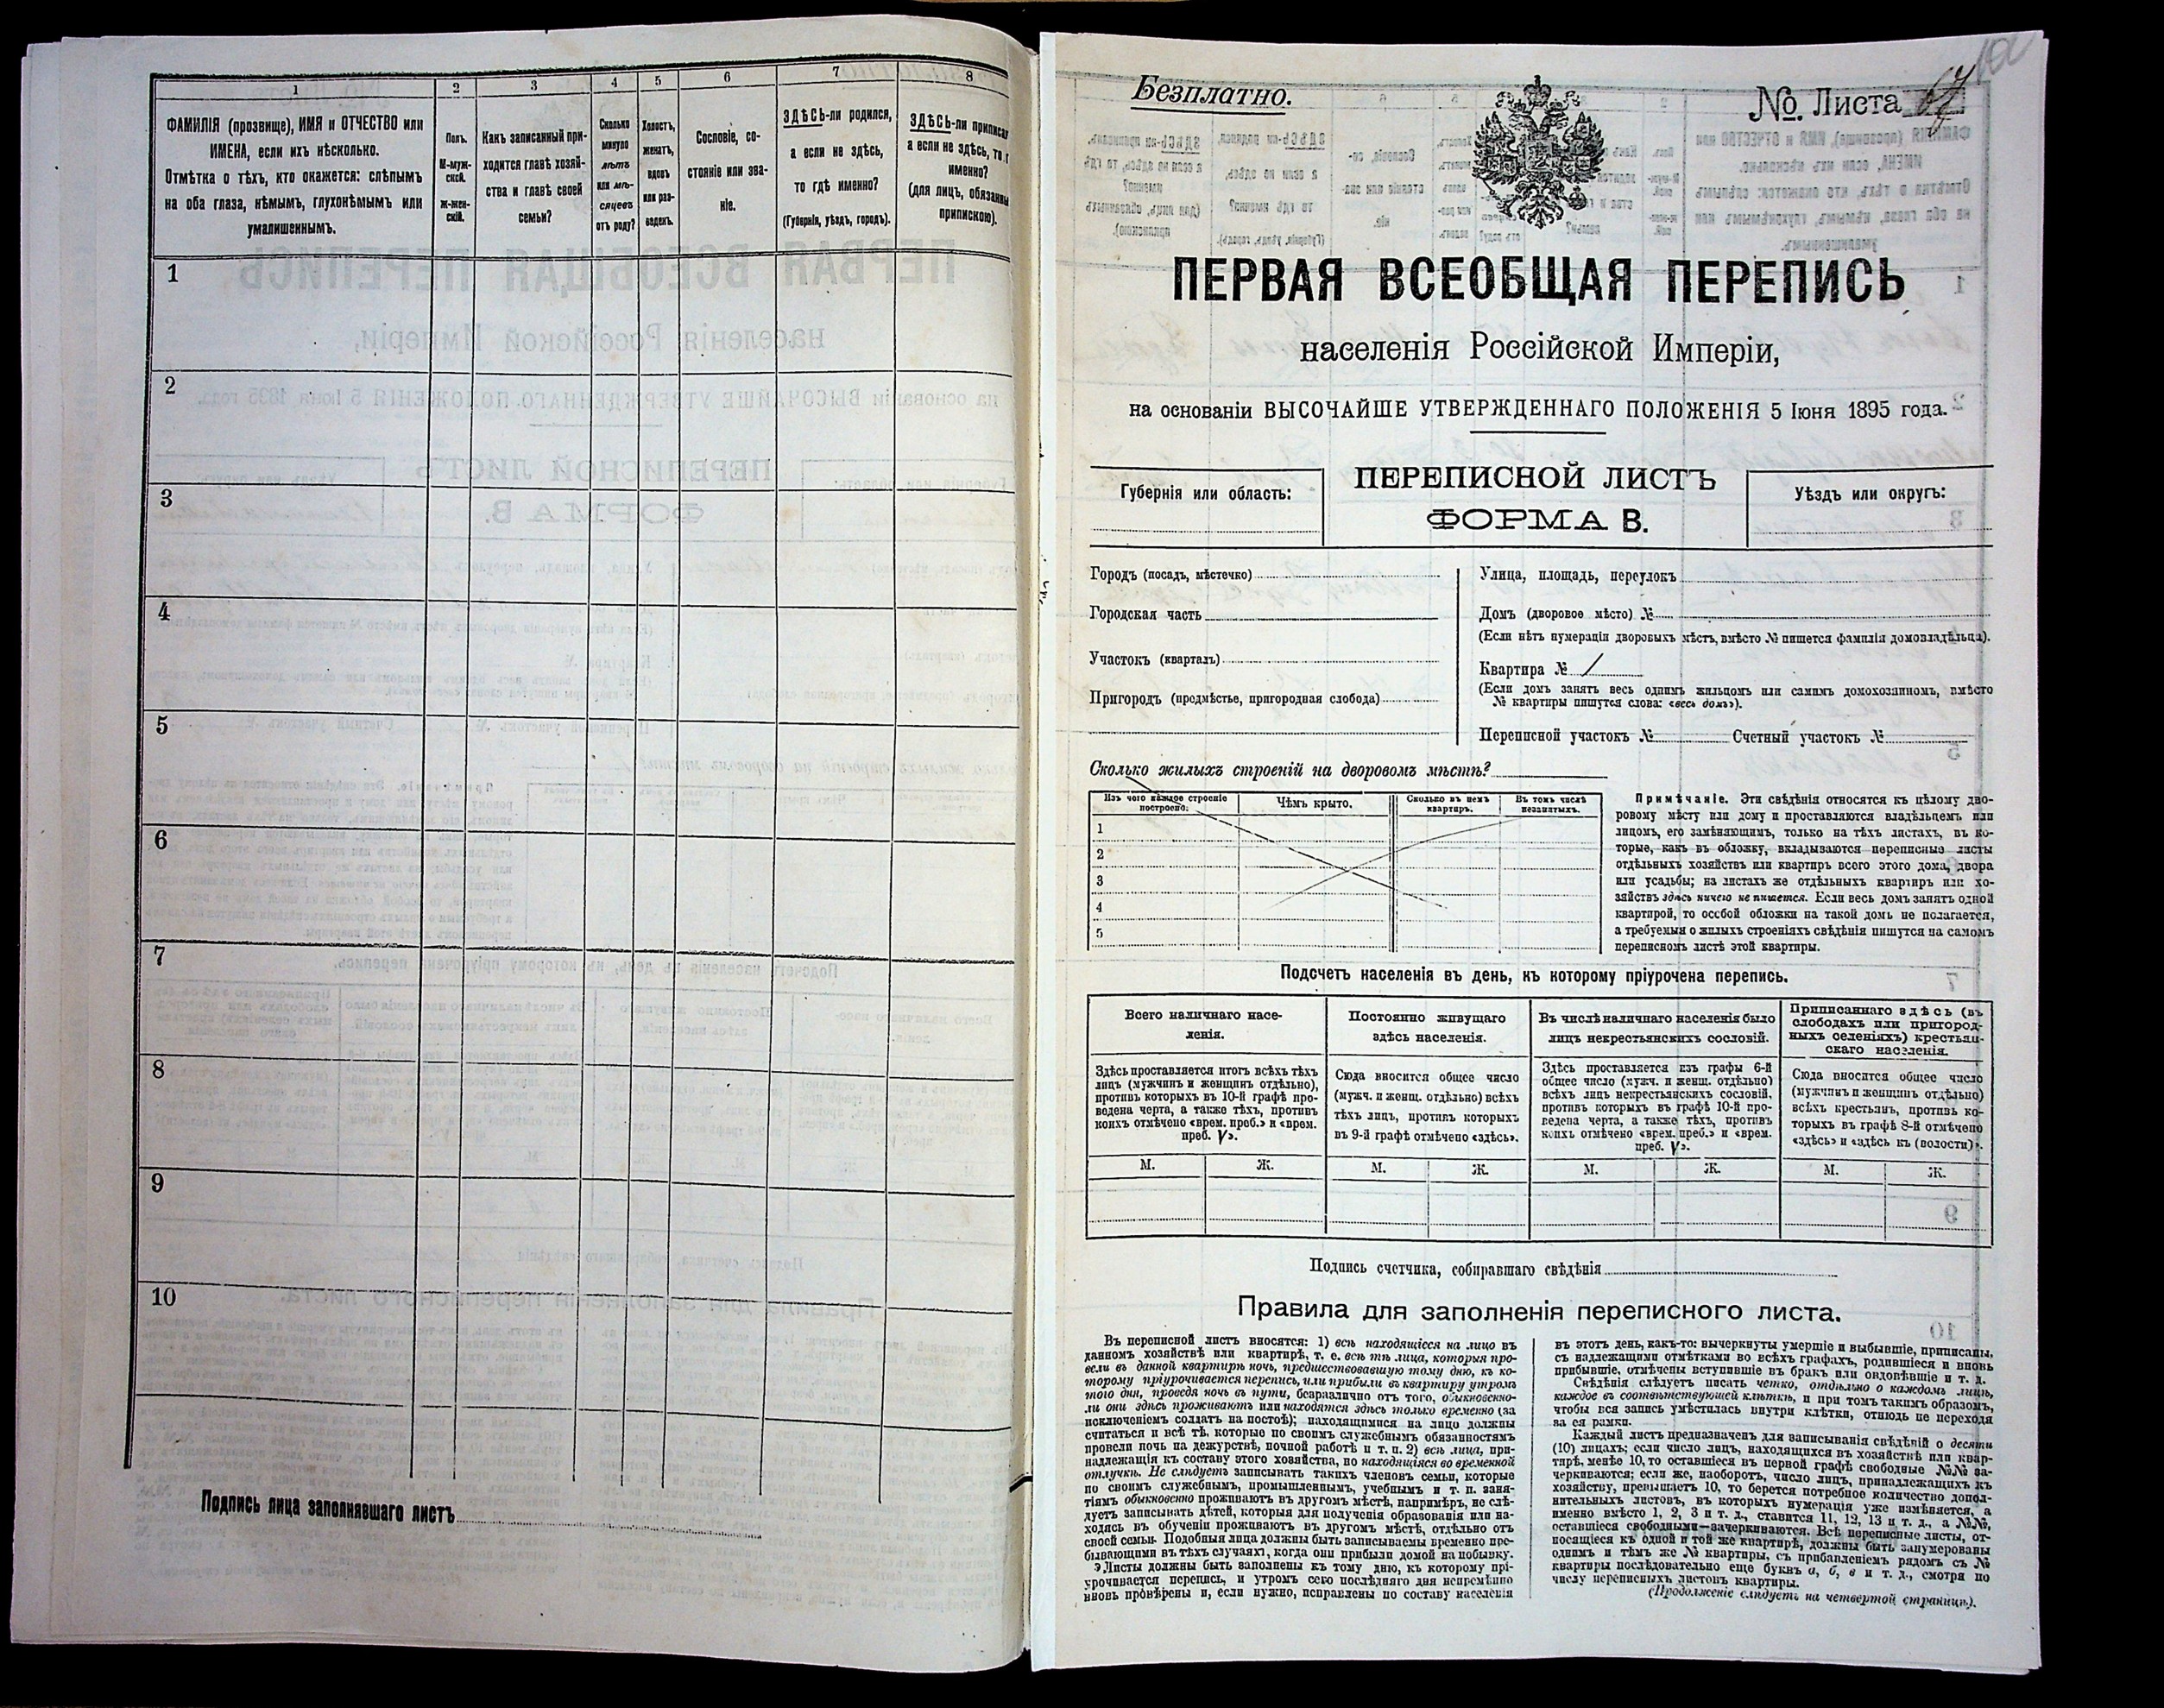 1
2
3
4
5
6
7
8
ФАМИЛІЯ (прозвище), ИМЯ и ОТЧЕСТВО или
ИМЕНА, если ихъ нѣсколько.
Отмѣтка о тѣхъ, кто окажется: слѣпымъ
на оба глаза, нѣмымъ, глухонѣмымъ или
умалишеннымъ.
Полъ.
М-муж-
ской.
ж-жен-
скій.
Какъ записанный при-
ходится главѣ хозяй-
ства и главѣ своей
семьи?
Сколько
минуло
лѣтъ
или мѣ-
сяцевъ
отъ роду?
Холостъ,
женатъ,
вдовъ
или раз-
веденъ.
Сословіе, со-
стояніе или зва-
ніе.
ЗДѢСЬ-ли родился,
а если не здѣсь,
то гдѣ именно?
(Губернія, уѣздъ, городъ).
ЗДѢСЬ-ли приписан
а если не здѣсь, то г
именно?
(для лицъ, обязанны
припискою).
1
2
3
4
5
6
7
8
9
10
Подпись лица заполнявшаго листъ
Безплатно.
№. Листа
ПЕРВАЯ ВСЕОБЩАЯ ПЕРЕПИСЬ
населенія Россійской Имперіи,
на основаніи ВЫСОЧАЙШЕ УТВЕРЖДЕННАГО ПОЛОЖЕНІЯ 5 Іюня 1895 года.
Губернія или область:
ПЕРЕПИСНОЙ ЛИСТЪ
ФОРМА В.
Уѣздъ или округъ:
Городъ (посадъ, мѣстечко)
Городская часть
Участокъ (кварталъ)
Пригородъ (предмѣстье, пригородная слобода)
Улица, площадь, переулокъ
Домъ (дворовое мѣсто) №
(Если нѣтъ нумераціи дворовыхъ мѣстъ, вмѣсто № пишется фамилія домовладѣльца).
Квартира № 1
(Если домъ занятъ весь однимъ жильцомъ или самимъ домохозяиномъ, вмѣсто
№ квартиры пишутся слова: «весь домъ»).
Переписной участокъ № Счетный участокъ №
Сколько жилыхъ строеній на дворовомъ мѣстѣ?
Изъ чего каждое строеніе
построено.
Чѣмъ крыто.
Сколько въ немъ
квартиръ.
Въ томъ числѣ
незанятыхъ.
1
2
3
4
5
Примѣчаніе. Эти свѣдѣнія относятся къ цѣлому дво-
ровому мѣсту или дому и проставляются владѣльцемъ или
лицомъ, его замѣняющимъ, только на тѣхъ листахъ, въ ко-
торые, какъ въ обложку, вкладываются переписные листы
отдѣльныхъ хозяйствъ или квартиръ всего этого дома, двора
или усадьбы; на листахъ же отдѣльныхъ квартиръ или хо-
зяйствъ здѣсь ничего не пишется. Если весь домъ занятъ одной
квартирой, то особой обложки на такой домъ не полагается,
а требуемыя о жилыхъ строеніяхъ свѣдѣнія пишутся на самомъ
переписномъ листѣ этой квартиры.
Подсчетъ населенія въ день, къ которому пріурочена перепись.
Всего наличнаго насе-
ленія.
Здѣсь проставляется итогъ всѣхъ тѣхъ
лицъ (мужчинъ и женщинъ отдѣльно),
противъ которыхъ въ 10-й графѣ про-
ведена черта, а также тѣхъ, противъ
коихъ отмѣчено «врем. преб.» и «врем.
преб. V».
Постоянно живущаго
здѣсь населенія.
Сюда вносится общее число
(мужч. и женщ. отдѣльно) всѣхъ
тѣхъ лицъ, противъ которыхъ
въ 9-й графѣ отмѣчено «здѣсь».
Въ числѣ наличнаго населенія было
лицъ некрестьянскихъ сословій.
Здѣсь проставляется изъ графы 6-й
общее число (мужч. и женщ. отдѣльно)
всѣхъ лицъ некрестьянскихъ сословій,
противъ которыхъ въ графѣ 10-й про-
ведена черта, а также тѣхъ, противъ
коихъ отмѣчено «врем. преб.» и «врем.
преб. V».
Приписаннаго здѣсь (въ
слободахъ или пригород-
ныхъ селеніяхъ) крестьян-
скаго населенія.
Сюда вносится общее число
(мужчинъ и женщинъ отдѣльно)
всѣхъ крестьянъ, противъ ко-
торыхъ въ графѣ 8-й отмѣчено
«здѣсь» и «здѣсь къ (волости)».
М. Ж. М. Ж. М. Ж. М. Ж.
Подпись счетчика, собиравшаго свѣдѣнія
Правила для заполненія переписного листа.
Въ переписной листъ вносятся: 1) всѣ находящіеся на лицо въ
данномъ хозяйствѣ или квартирѣ, т. е. всѣ тѣ лица, которыя про-
вели въ данной квартирѣ ночь, предшествовавшую тому дню, къ ко-
торому пріурочивается перепись, или прибыли въ квартиру утромъ
того дня, проведя ночь въ пути, безразлично отъ того, обыкновенно-
ли они здѣсь проживаютъ или находятся здѣсь только временно (за
исключеніемъ солдатъ на постоѣ); находящимися на лицо должны
считаться и всѣ тѣ, которые по своимъ служебнымъ обязанностямъ
провели ночь на дежурствѣ, ночной работѣ и т. п. 2) всѣ лица, при-
надлежащія къ составу этого хозяйства, но находящіяся во временной
отлучкѣ. Не слѣдуетъ записывать такихъ членовъ семьи, которые
по своимъ служебнымъ, промышленнымъ, учебнымъ и т. п. заня-
тіямъ обыкновенно проживаютъ въ другомъ мѣстѣ, напримѣръ, не слѣ-
дуетъ записывать дѣтей, которыя для полученія образованія или на-
ходясь въ обученіи проживаютъ въ другомъ мѣстѣ, отдѣльно отъ
своей семьи. Подобныя лица должны быть записываемы временно пре-
бывающими въ тѣхъ случаяхъ, когда они прибыли домой на побывку.
Листы должны быть заполнены къ тому дню, къ которому прі-
урочивается перепись, и утромъ сего послѣдняго дня непремѣнно
вновь провѣрены и, если нужно, исправлены по составу населенія
въ этотъ день, какъ-то: вычеркнуты умершіе и выбывшіе, приписаны,
съ надлежащими отмѣтками во всѣхъ графахъ, родившіеся и вновь
прибывшіе, отмѣчены вступившіе въ бракъ или овдовѣвшіе и т. д.
Свѣдѣнія слѣдуетъ писать четко, отдѣльно о каждомъ лицѣ,
каждое въ соотвѣтствующей клѣткѣ, и при томъ такимъ образомъ,
чтобы вся запись умѣстилась внутри клѣтки, отнюдь не переходя
за ея рамки.
Каждый листъ предназначенъ для записыванія свѣдѣній о десяти
(10) лицахъ; если число лицъ, находящихся въ хозяйствѣ или квар-
тирѣ, менѣе 10, то оставшіеся въ первой графѣ свободные №№ за-
черкиваются; если же, наоборотъ, число лицъ, принадлежащихъ къ
хозяйству, превышаетъ 10, то берется потребное количество допол-
нительныхъ листовъ, въ которыхъ нумерація уже измѣняется, а
именно вмѣсто 1, 2, 3 и т. д., ставится 11, 12, 13 и т. д., а №№,
оставшіеся свободными—зачеркиваются. Всѣ переписные листы, от-
носящіеся къ одной и той же квартирѣ, должны быть занумерованы
однимъ и тѣмъ же № квартиры, съ прибавленіемъ рядомъ съ №
квартиры послѣдовательно еще буквъ а, б, в и т. д., смотря по
числу переписныхъ листовъ квартиры.
(Продолженіе слѣдуетъ на четвертой страницѣ).